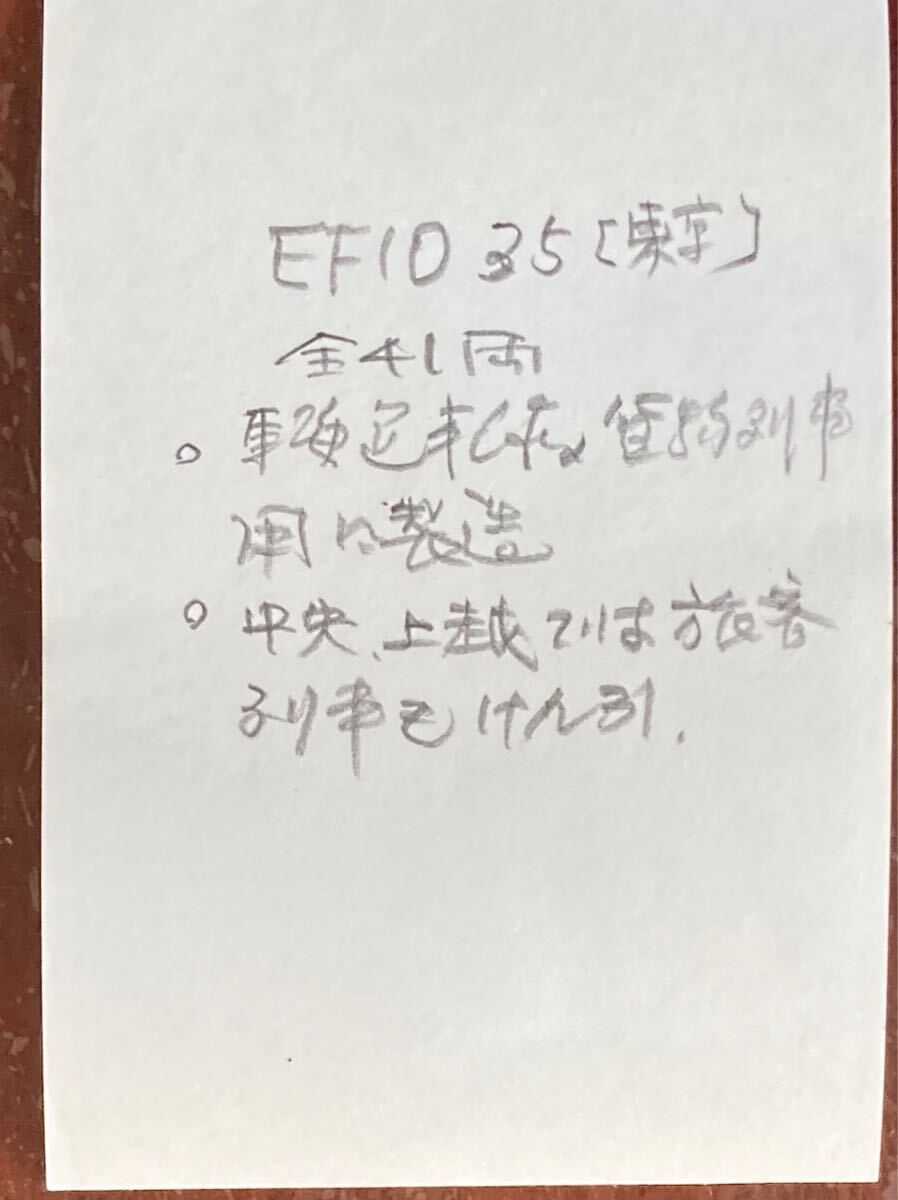 EF10 35 [東京]
全41両
○ 貨物列車
用に製造
○ 中央、上越では旅客
列車をけん引.